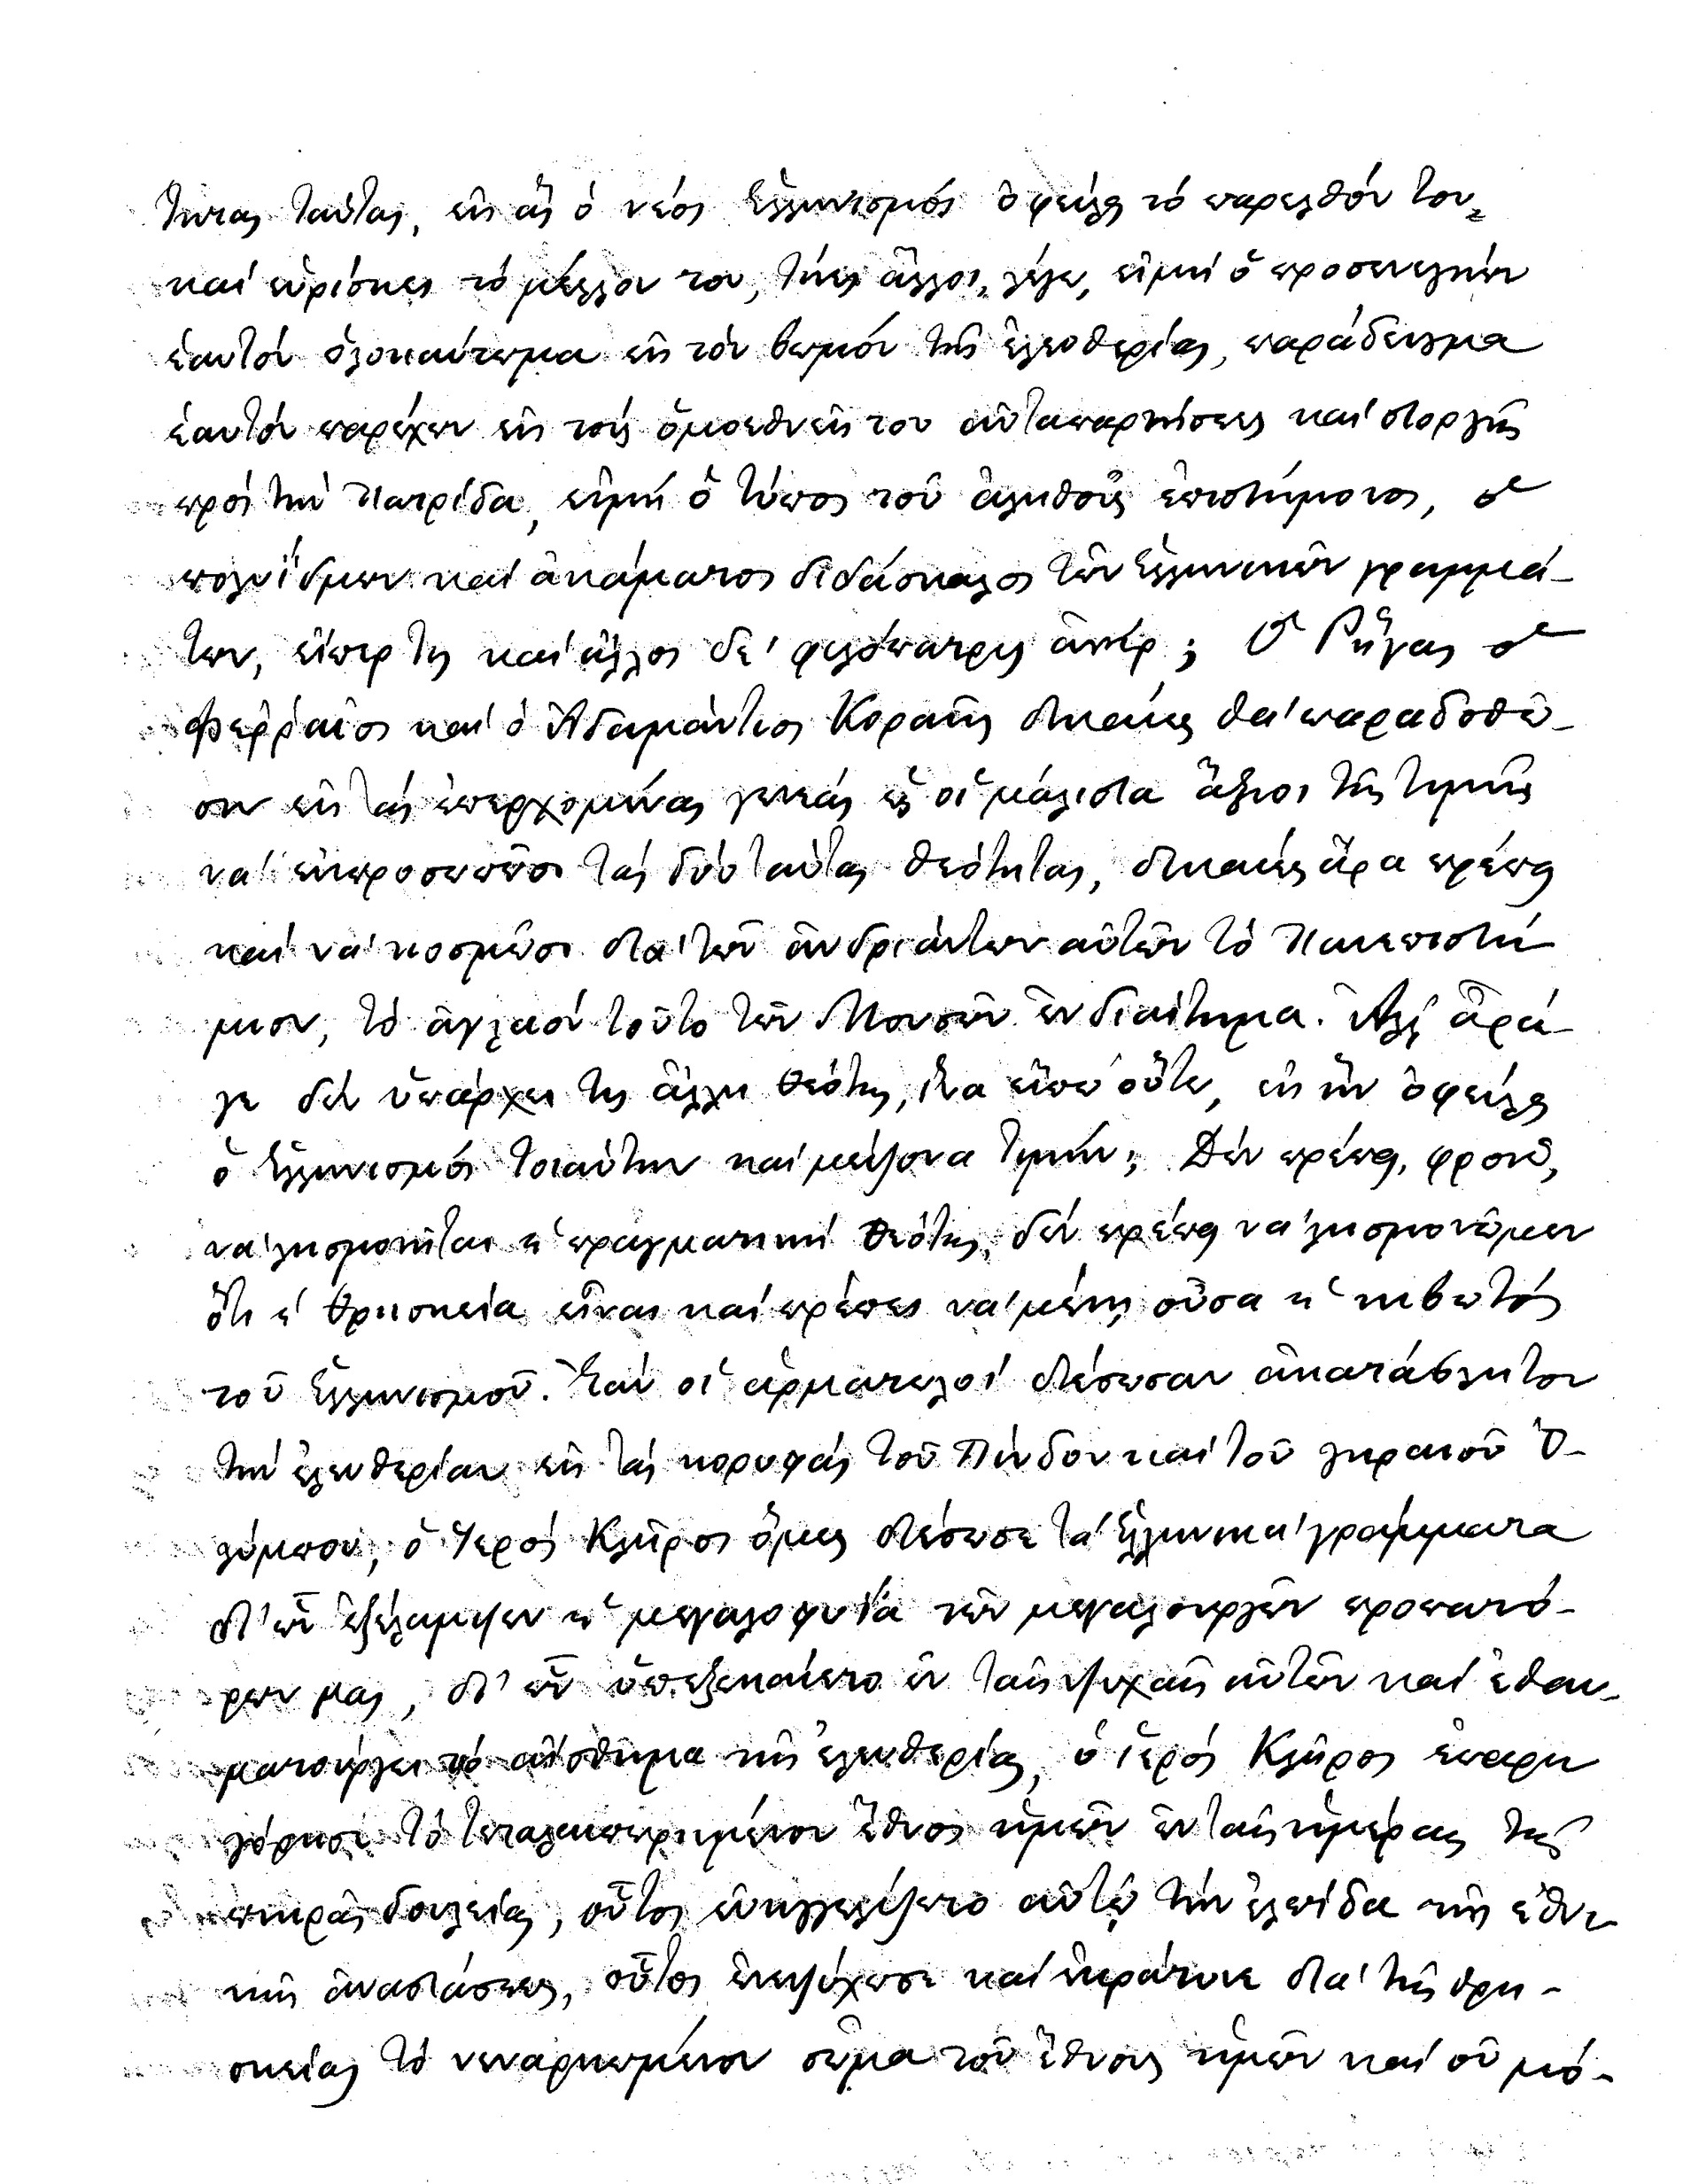 τητας ταύτας, εἰς ἃς ὁ νέος Ἑλληνισμός ὀφείλει τό παρελθόν του,
καί εὑρίσκει τό μέλλον του, τίνες ἄλλοι, λέγω, εἰμή ὁ προσενεγκών
ἑαυτόν ὁλοκαύτωμα εἰς τόν βωμόν τῆς ἐλευθερίας, παράδειγμα
ἑαυτόν παρέχων εἰς τούς ὁμοεθνεῖς του αὐταπαρνήσεως καί στοργῆς
πρός τήν Πατρίδα, εἰμή ὁ τύπος τοῦ ἀληθοῦς ἐπιστήμονος, ὁ
πολυΐδμων καί ἀκάματος διδάσκαλος τῶν Ἑλληνικῶν γραμμά-
των, εἴπερ τις καί ἄλλος δέ φιλόπατρις ἀνήρ; Ὁ Ρήγας ὁ
Φερραῖος καί ὁ Ἀδαμάντιος Κοραῆς δικαίως θά παραδοθῶ-
σιν εἰς τάς ἐπερχομένας γενεάς ὡς οἱ μάλιστα ἄξιοι τῆς τιμῆς
νά ἐκπροσωπῶσι τάς δύο ταύτας θεότητας, δικαίως ἄρα πρέπει
καί νά κοσμῶσι διά τῶν ἀνδριάντων αὐτῶν τό Πανεπιστή
μιον, τό ἀγλαόν τοῦτο τῶν Μουσῶν ἐνδιαίτημα. Ἀλλ' ἆρά
γε δέν ὑπάρχει τις ἄλλη θεότης, ἵνα εἴπω οὕτω, εἰς ἥν ὀφείλει
ὁ Ἑλληνισμός τοιαύτην καί μείζονα τιμήν; Δέν πρέπει, φρονῶ,
νά λησμονῆται ἡ πραγματική θεότης, δέν πρέπει νά λησμονῶμεν
ὅτι ἡ θρησκεία εἶναι καί πρέπει νά μένῃ οὖσα ἡ κιβωτός
τοῦ Ἑλληνισμοῦ. Ἐάν οἱ ἁρματωλοί διέσωσαν ἀκατάβλητον
τήν ἐλευθερίαν εἰς τάς κορυφάς τοῦ Πίνδου καί τοῦ γηραιοῦ Ὀ-
λύμπου, ὁ Ἱερός Κλῆρος ὅμως διέσωσε τά Ἑλληνικά γράμματα
δι' ὧν ἐξέλαμψεν ἡ μεγαλοφυΐα τῶν μεγαλουργῶν προπατό-
ρων μας, δι' ὧν ὑπεξεκαίετο ἐν ταῖς ψυχαῖς αὐτῶν καί ἐθαυ-
ματούργει τό αἴσθημα τῆς ἐλευθερίας, ὁ ἱερός Κλῆρος ἐπαρη
γόρησε τό τεταλαιπωρημένον ἔθνος ἡμῶν ἐν ταῖς ἡμέραις τῆς
πικρᾶς δουλείας, οὗτος εὐηγγελίζετο αὐτῷ τήν ἐλπίδα τῆς ἐθνι
κῆς ἀναστάσεως, οὗτος ἐνεψύχωσε καί ἐκράτυνε διά τῆς θρη-
σκείας τό νεναρκωμένον σῶμα τοῦ ἔθνους ἡμῶν καί οὐ μό-